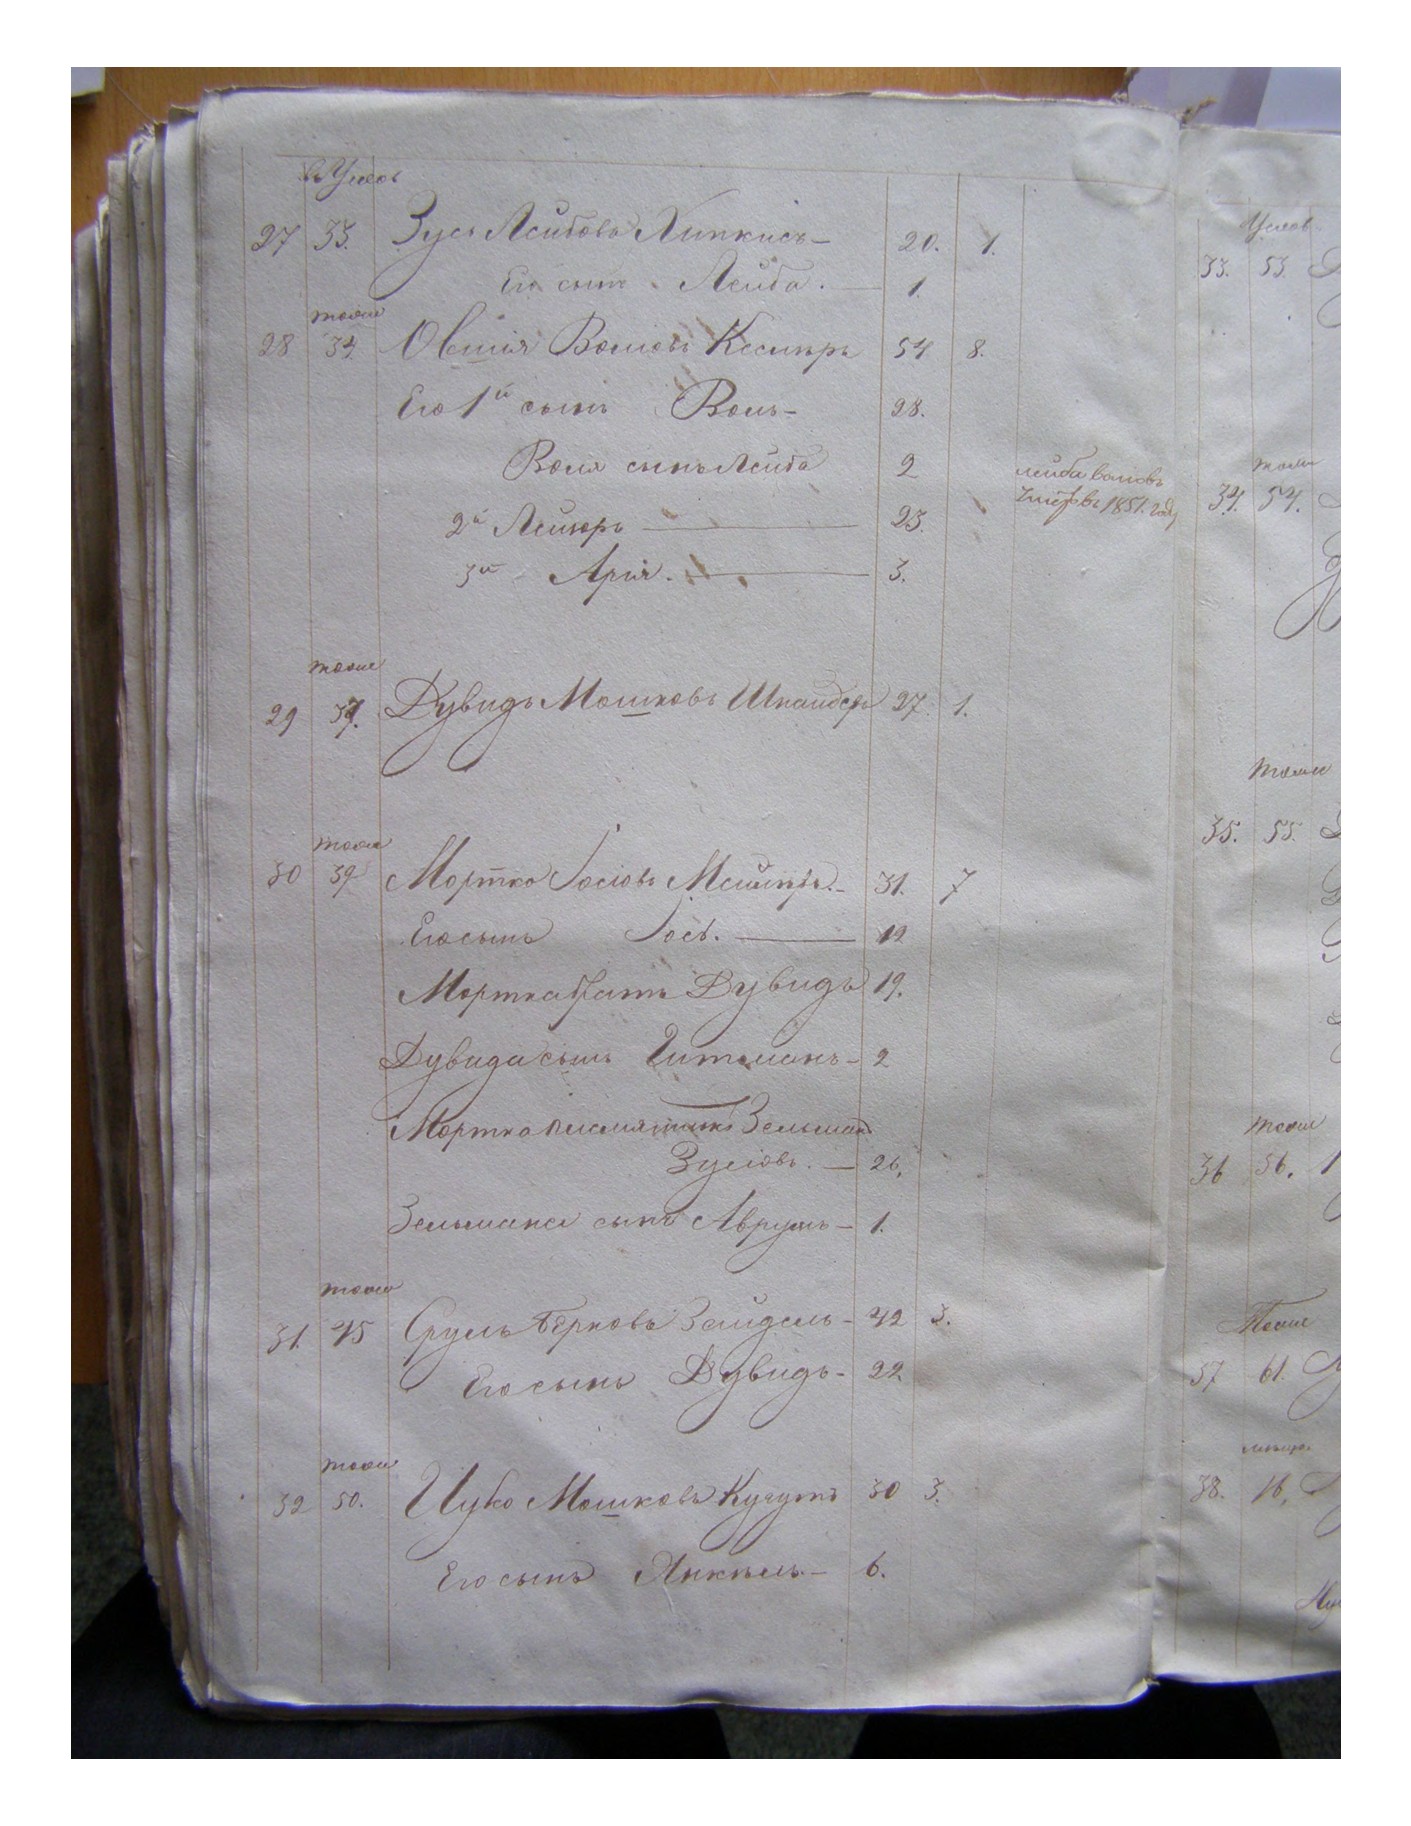 27 33. Зусь Лейбовъ Липкисъ — 20. 1.
Его сынъ Лейба. — 1.
тоже
28 34. Овшія Волковъ 54 8.
Его 1й сынъ Воль — 28.
Воля сынъ Лейба 2
Лейба
умеръ въ 1851. году
2й Лейзоръ — 23.
3й Арія. — 3.
тоже
29 Дувидъ Мошковъ 27. 1.
тоже
30 39 Мортко Іосіовъ 31. 7
Его сынъ Іось. — 12
Мортка братъ Дувидъ 19.
Дувида сынъ Гитманъ — 2
Мортка племянникъ Зельманъ
Зусіовъ. — 26.
Зельмана сынъ Аврумъ — 1.
тоже
31. 45 Сруль Берковъ Зайдель — 42 3.
Его сынъ Дувидъ — 22
тоже
32 50. Ицко Мошковъ 30 3.
Его сынъ Янкель. — 6.
33. 53.
тоже
34. 54.
тоже
35. 55.
тоже
36 56.
Тоже
37 61.
38. 16.